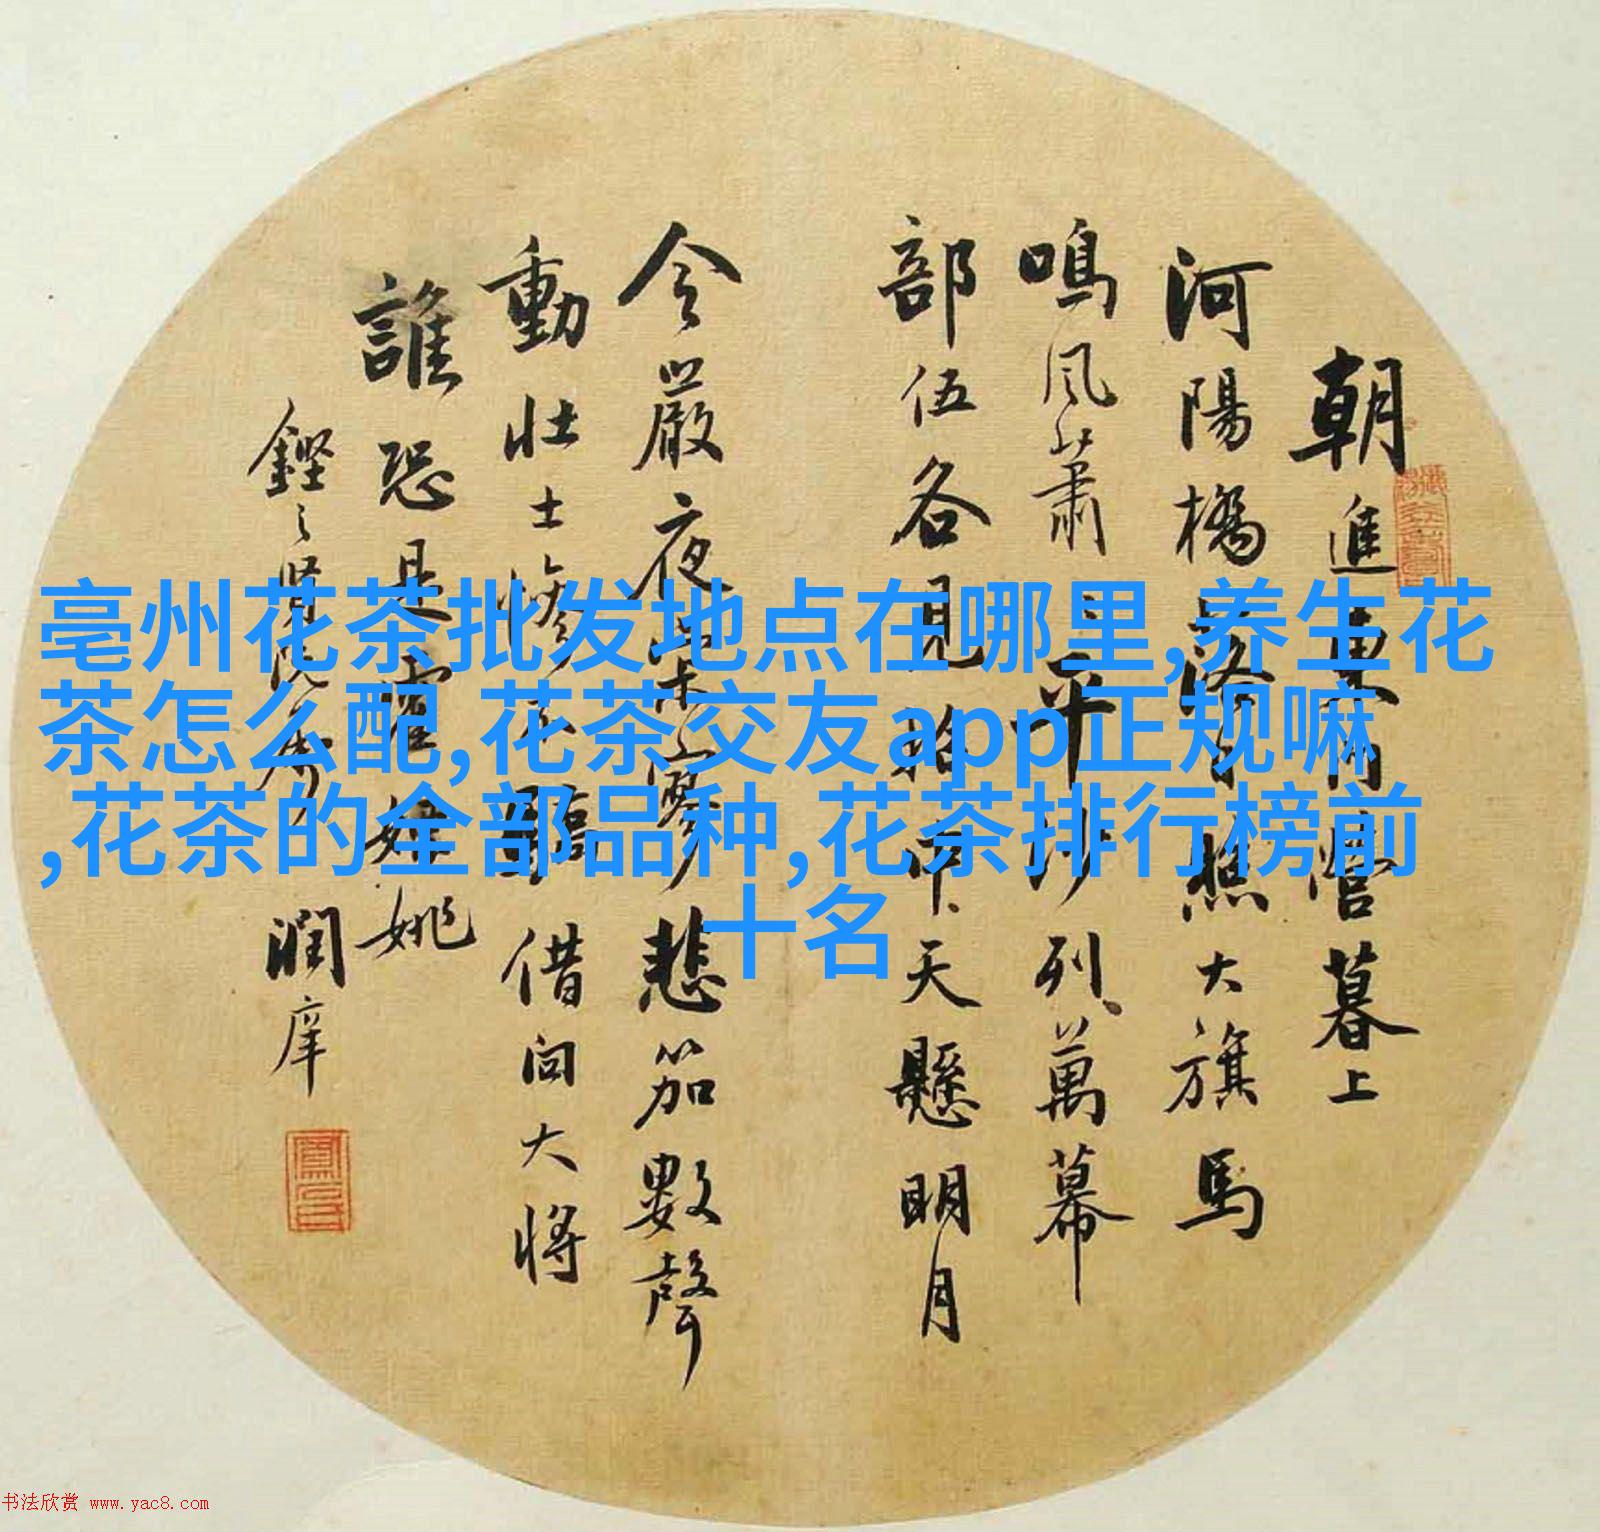 朝進東門營暮上
河陽橋落日照大旗馬
鳴風蕭：平沙列萬幕
部伍各見招中天懸明月
令嚴夜寂寥悲笳數聲
動壯士慘不驕借问大將
誰恐是霍嫖姚
鏗之贤阮属
潤庠
亳州花茶批发地点在哪里,养生花
茶怎么配,花茶交友app正规嘛
,花茶的全部品种,花茶排行榜前
十名
书法欣赏 www.yac8.com